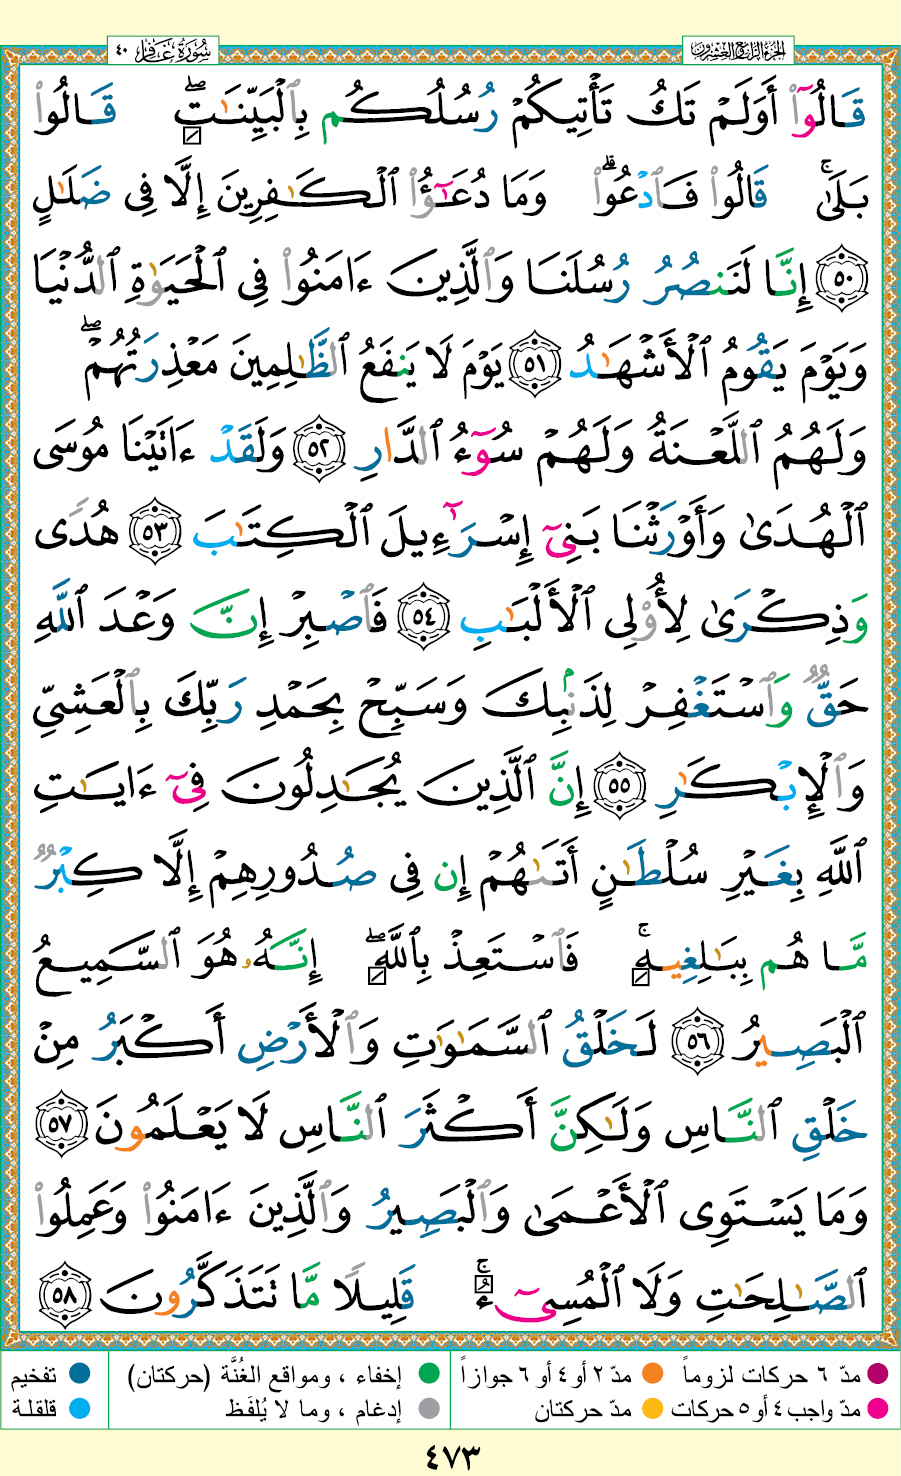 الجزء الرابع والعشرون
سُورَةُ غَافِر ٤٠
قَالُوٓا۟ أَوَلَمْ تَكُ تَأْتِيكُمْ رُسُلُكُم بِٱلْبَيِّنَـٰتِ ۖ قَالُوا۟
بَلَىٰ ۚ قَالُوا۟ فَٱدْعُوا۟ ۗ وَمَا دُعَـٰٓؤُا۟ ٱلْكَـٰفِرِينَ إِلَّا فِى ضَلَـٰلٍ
٥٠ إِنَّا لَنَنصُرُ رُسُلَنَا وَٱلَّذِينَ ءَامَنُوا۟ فِى ٱلْحَيَوٰةِ ٱلدُّنْيَا
وَيَوْمَ يَقُومُ ٱلْأَشْهَـٰدُ ٥١ يَوْمَ لَا يَنفَعُ ٱلظَّـٰلِمِينَ مَعْذِرَتُهُمْ ۖ
وَلَهُمُ ٱللَّعْنَةُ وَلَهُمْ سُوٓءُ ٱلدَّارِ ٥٢ وَلَقَدْ ءَاتَيْنَا مُوسَى
ٱلْهُدَىٰ وَأَوْرَثْنَا بَنِىٓ إِسْرَٰٓءِيلَ ٱلْكِتَـٰبَ ٥٣ هُدًى
وَذِكْرَىٰ لِأُو۟لِى ٱلْأَلْبَـٰبِ ٥٤ فَٱصْبِرْ إِنَّ وَعْدَ ٱللَّهِ
حَقٌّ وَٱسْتَغْفِرْ لِذَنۢبِكَ وَسَبِّحْ بِحَمْدِ رَبِّكَ بِٱلْعَشِىِّ
وَٱلْإِبْكَـٰرِ ٥٥ إِنَّ ٱلَّذِينَ يُجَـٰدِلُونَ فِىٓ ءَايَـٰتِ
ٱللَّهِ بِغَيْرِ سُلْطَـٰنٍ أَتَىٰهُمْ إِن فِى صُدُورِهِمْ إِلَّا كِبْرٌ
مَّا هُم بِبَـٰلِغِيهِ ۚ فَٱسْتَعِذْ بِٱللَّهِ ۖ إِنَّهُۥ هُوَ ٱلسَّمِيعُ
ٱلْبَصِيرُ ٥٦ لَخَلْقُ ٱلسَّمَـٰوَٰتِ وَٱلْأَرْضِ أَكْبَرُ مِنْ
خَلْقِ ٱلنَّاسِ وَلَـٰكِنَّ أَكْثَرَ ٱلنَّاسِ لَا يَعْلَمُونَ ٥٧
وَمَا يَسْتَوِى ٱلْأَعْمَىٰ وَٱلْبَصِيرُ وَٱلَّذِينَ ءَامَنُوا۟ وَعَمِلُوا۟
ٱلصَّـٰلِحَـٰتِ وَلَا ٱلْمُسِىٓءُ ۚ قَلِيلًا مَّا تَتَذَكَّرُونَ ٥٨
مدّ ٦ حركات لزوماً مدّ ٢ أو ٤ أو ٦ جوازاً إخفاء ، ومواقع الغُنَّة (حركتان) تفخيم
مدّ واجب ٤ أو ٥ حركات مدّ حركتان إدغام ، وما لا يُلفَظ قلقلة
٤٧٣